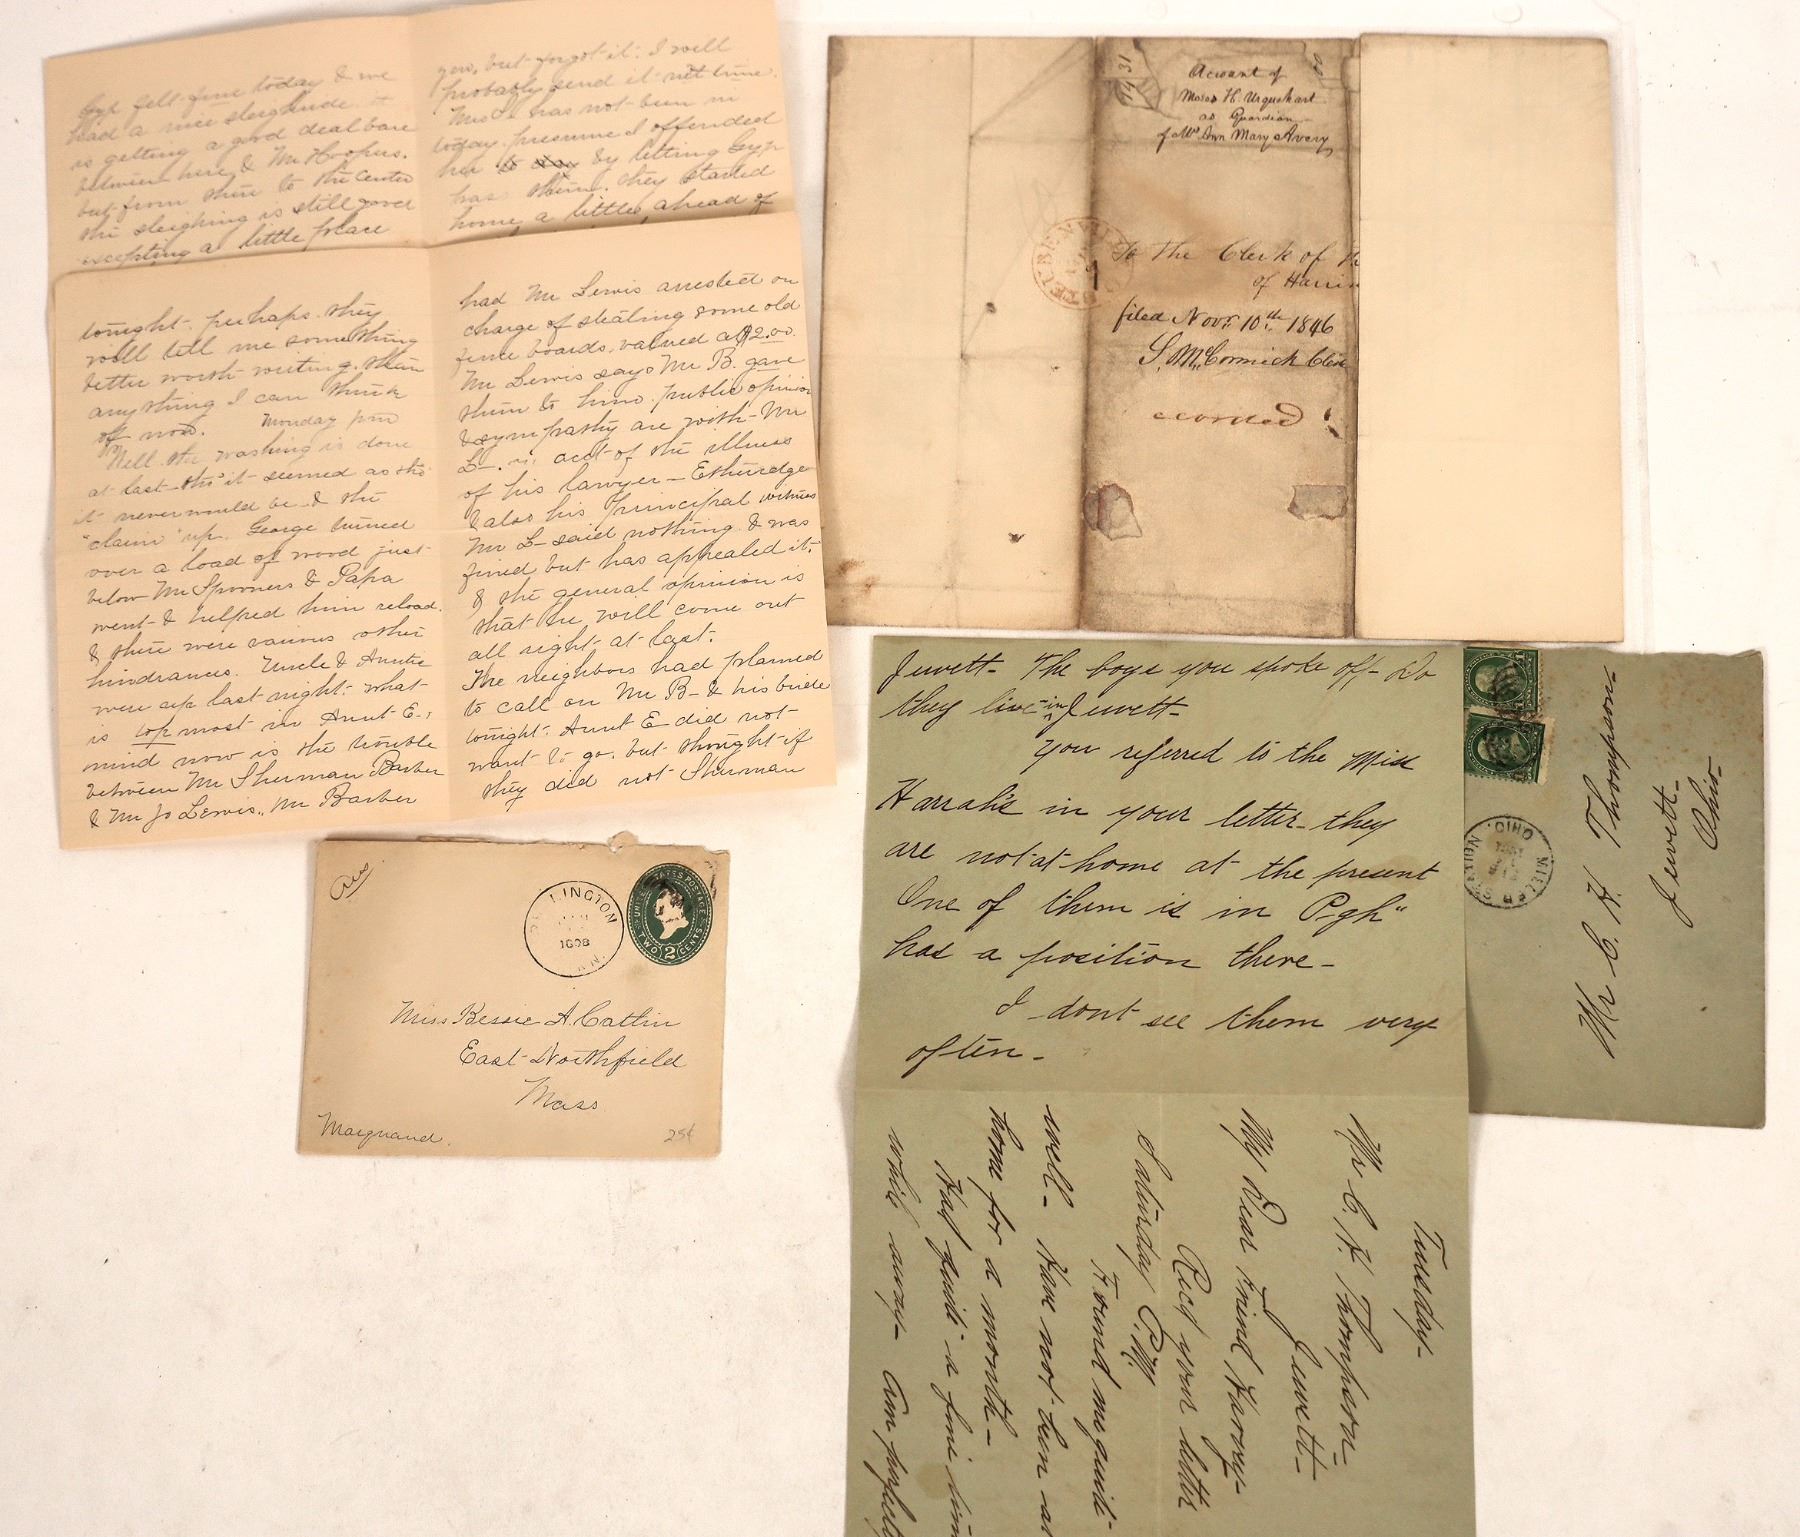 Gyp felt fine today & we
had a nice sleighride. it
is getting a good deal bare
between here & Mr Hoopers.
but from there to the center
the sleighing is still good
excepting a little place
you, but forgot it. I will
probably send it next time.
Mrs L has not been in
today. presume I offended
her by letting Gyp
has them. they started
home a little ahead of
tonight. perhaps they
will tell me something
better worth writing than
anything I can think
of now. Monday pm
Well the washing is done
at last tho' it seemed as tho'
it never would be & the
"claim" up. George turned
over a load of wood just
below Mr Spooners & Papa
went & helped him reload.
& there were various other
hindrances. Uncle & Auntie
were up last night. what
is top most in Aunt E.,
mind now is the trouble
between Mr Sherman Barber
& Mr Jo Lewis,. Mr Barber
had Mr Lewis arrested on
charge of stealing some old
fence boards. valued at $2.00.
Mr Lewis says Mr B. gave
them to him. public opinion
& sympathy are with Mr
L-. acct of the illness
of his lawyer - Etheredge
& also his principal witness
Mr L- said nothing & was
fined but has appealed it.
& the general opinion is
that he will come out
all right at last.
The neighbors had planned
to call on Mr B- & his bride
tonight. Aunt E did not
want to go. but thought if
they did not Sherman
Account of
Moses H. Urquehart
as Guardian
of Mrs Ann Mary Avery
To The Clerk of
of Harri
filed Novr. 10th 1846
S. McCormick Clerk
ecorded
STEUBENVILLE
Jewett- The boys you spoke off- Do
they live in Jewett-
You referred to the Miss
Harrah's in your letter- they
are not at home at the present
One of them is in P-gh"
has a position there-
I dont see them very
often-
Tuesday-
Mr C. H. Thompson-
Jewett-
My Dear Friend Harvey-
Recd your letter
Saturday P.M.
Found me quite
well- Have not been at
home for a month-
Had quite a fine time
while away- Am perfectly
Mr C H Thompson-
Jewett-
Ohio-
MILLER STATION.
OHIO.
LINGTON
1898
UNITED STATES POSTAGE
TWO 2 CENTS
Miss Bessie A Catlin
East Northfield
Mass
Marquand.
25¢